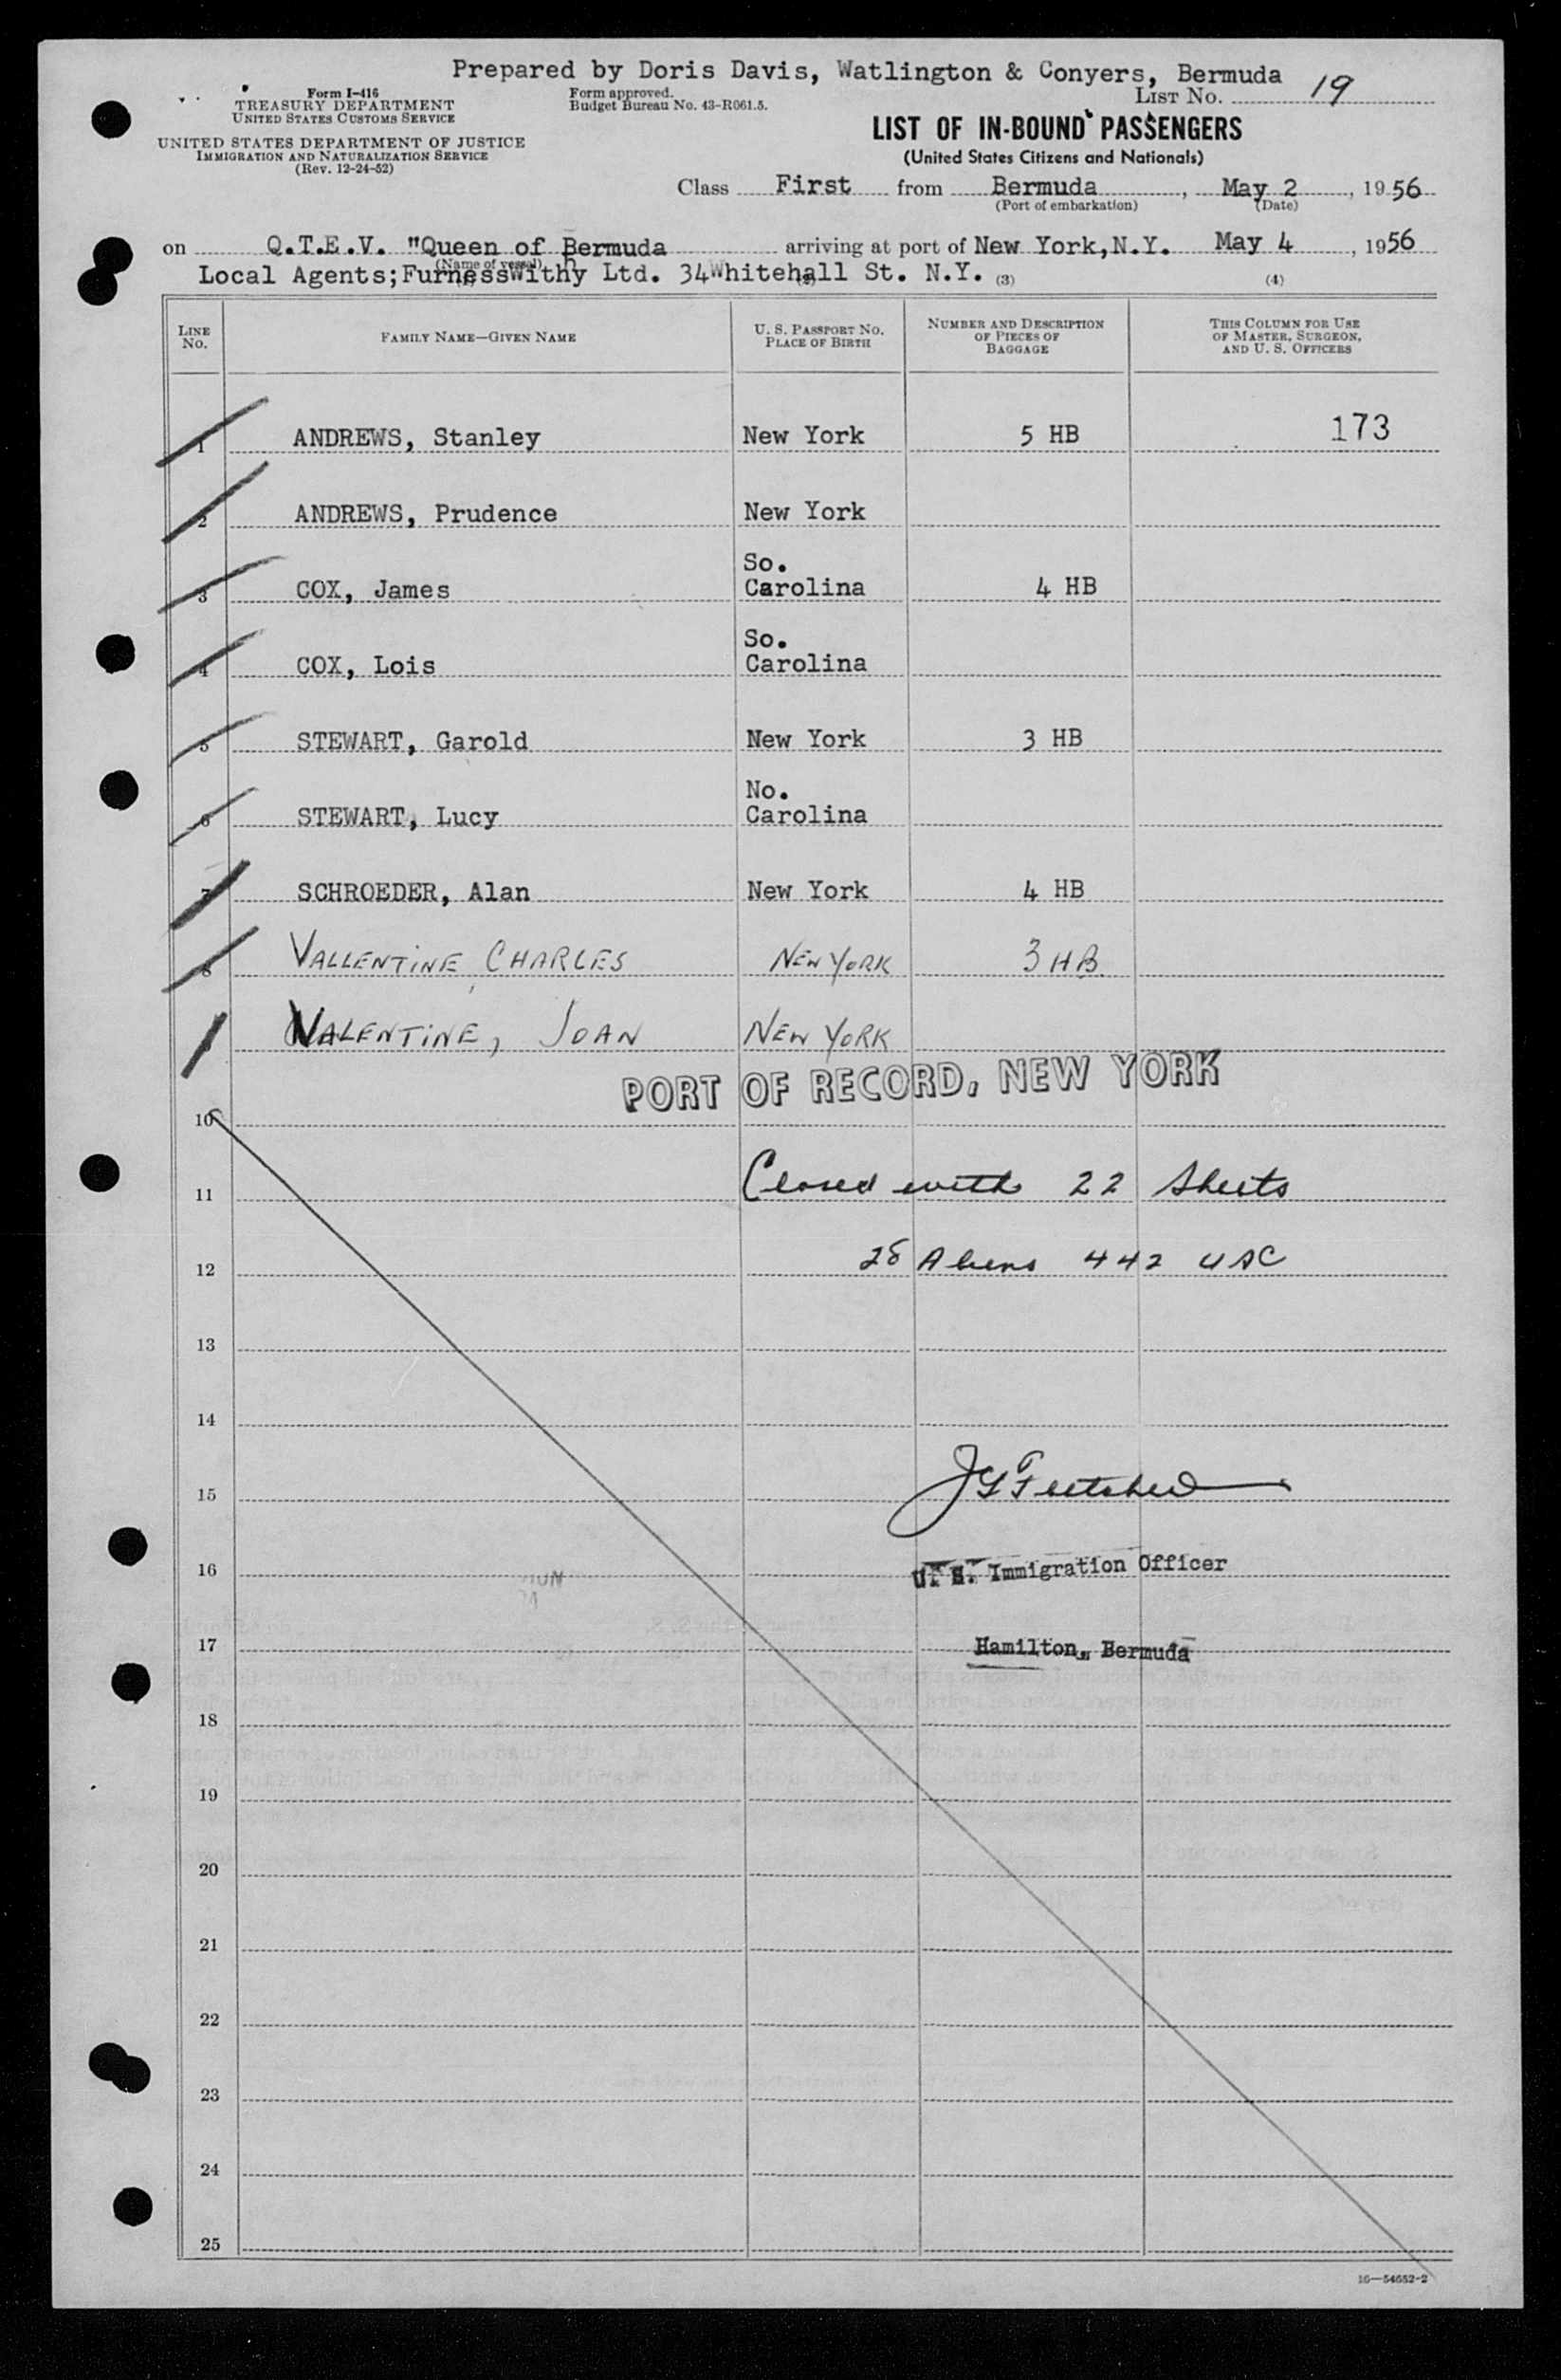 Prepared by Doris Davis, Watlington & Conyers, Bermuda
Form I-416
TREASURY DEPARTMENT
UNITED STATES CUSTOMS SERVICE
UNITED STATES DEPARTMENT OF JUSTICE
IMMIGRATION AND NATURALIZATION SERVICE
(Rev. 12-24-52)
Form approved.
Budget Bureau No. 43-R061.5.
LIST NO. 19
LIST OF IN-BOUND PASSENGERS
(United States Citizens and Nationals)
Class First from Bermuda, May 2, 1956
(Port of embarkation) (Date)
on Q.T.E.V. "Queen of Bermuda arriving at port of New York, N.Y. May 4, 1956
(Name of vessel)
Local Agents; Furness Withy Ltd. 34 Whitehall St. N.Y.
(3) (4)
LINE NO. FAMILY NAME—GIVEN NAME U. S. PASSPORT NO. PLACE OF BIRTH NUMBER AND DESCRIPTION OF PIECES OF BAGGAGE THIS COLUMN FOR USE OF MASTER, SURGEON, AND U. S. OFFICERS
1 ANDREWS, Stanley New York 5 HB 173
2 ANDREWS, Prudence New York
3 COX, James So. Carolina 4 HB
4 COX, Lois So. Carolina
5 STEWART, Garold New York 3 HB
6 STEWART, Lucy No. Carolina
7 SCHROEDER, Alan New York 4 HB
8 VALLENTINE, CHARLES NEW YORK 3 HB
VALENTINE, JOAN NEW YORK
PORT OF RECORD, NEW YORK
10
11 Closed with 22 Sheets
12 28 Aliens 442 USC
13
14
15
16 U. S. Immigration Officer
17 Hamilton, Bermuda
18
19
20
21
22
23
24
25
16—54652-2